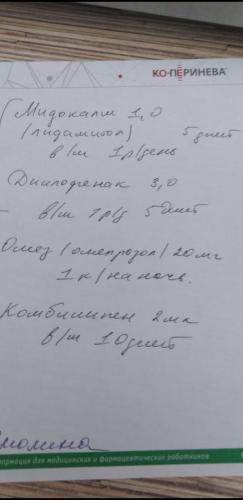 КО-ПЕРИНЕВА®
Мидокалм 1,0
(лидамитол) 5 дней
в/м 1 р/день
Диклофенак 3,0
в/м 1 р/д 5 дней
Омез (омепрозол) 20 мг
1 к / на ночь.
Комбилипен 2 мл
в/м 10 дней
формация для медицинских и фармацевтических работников